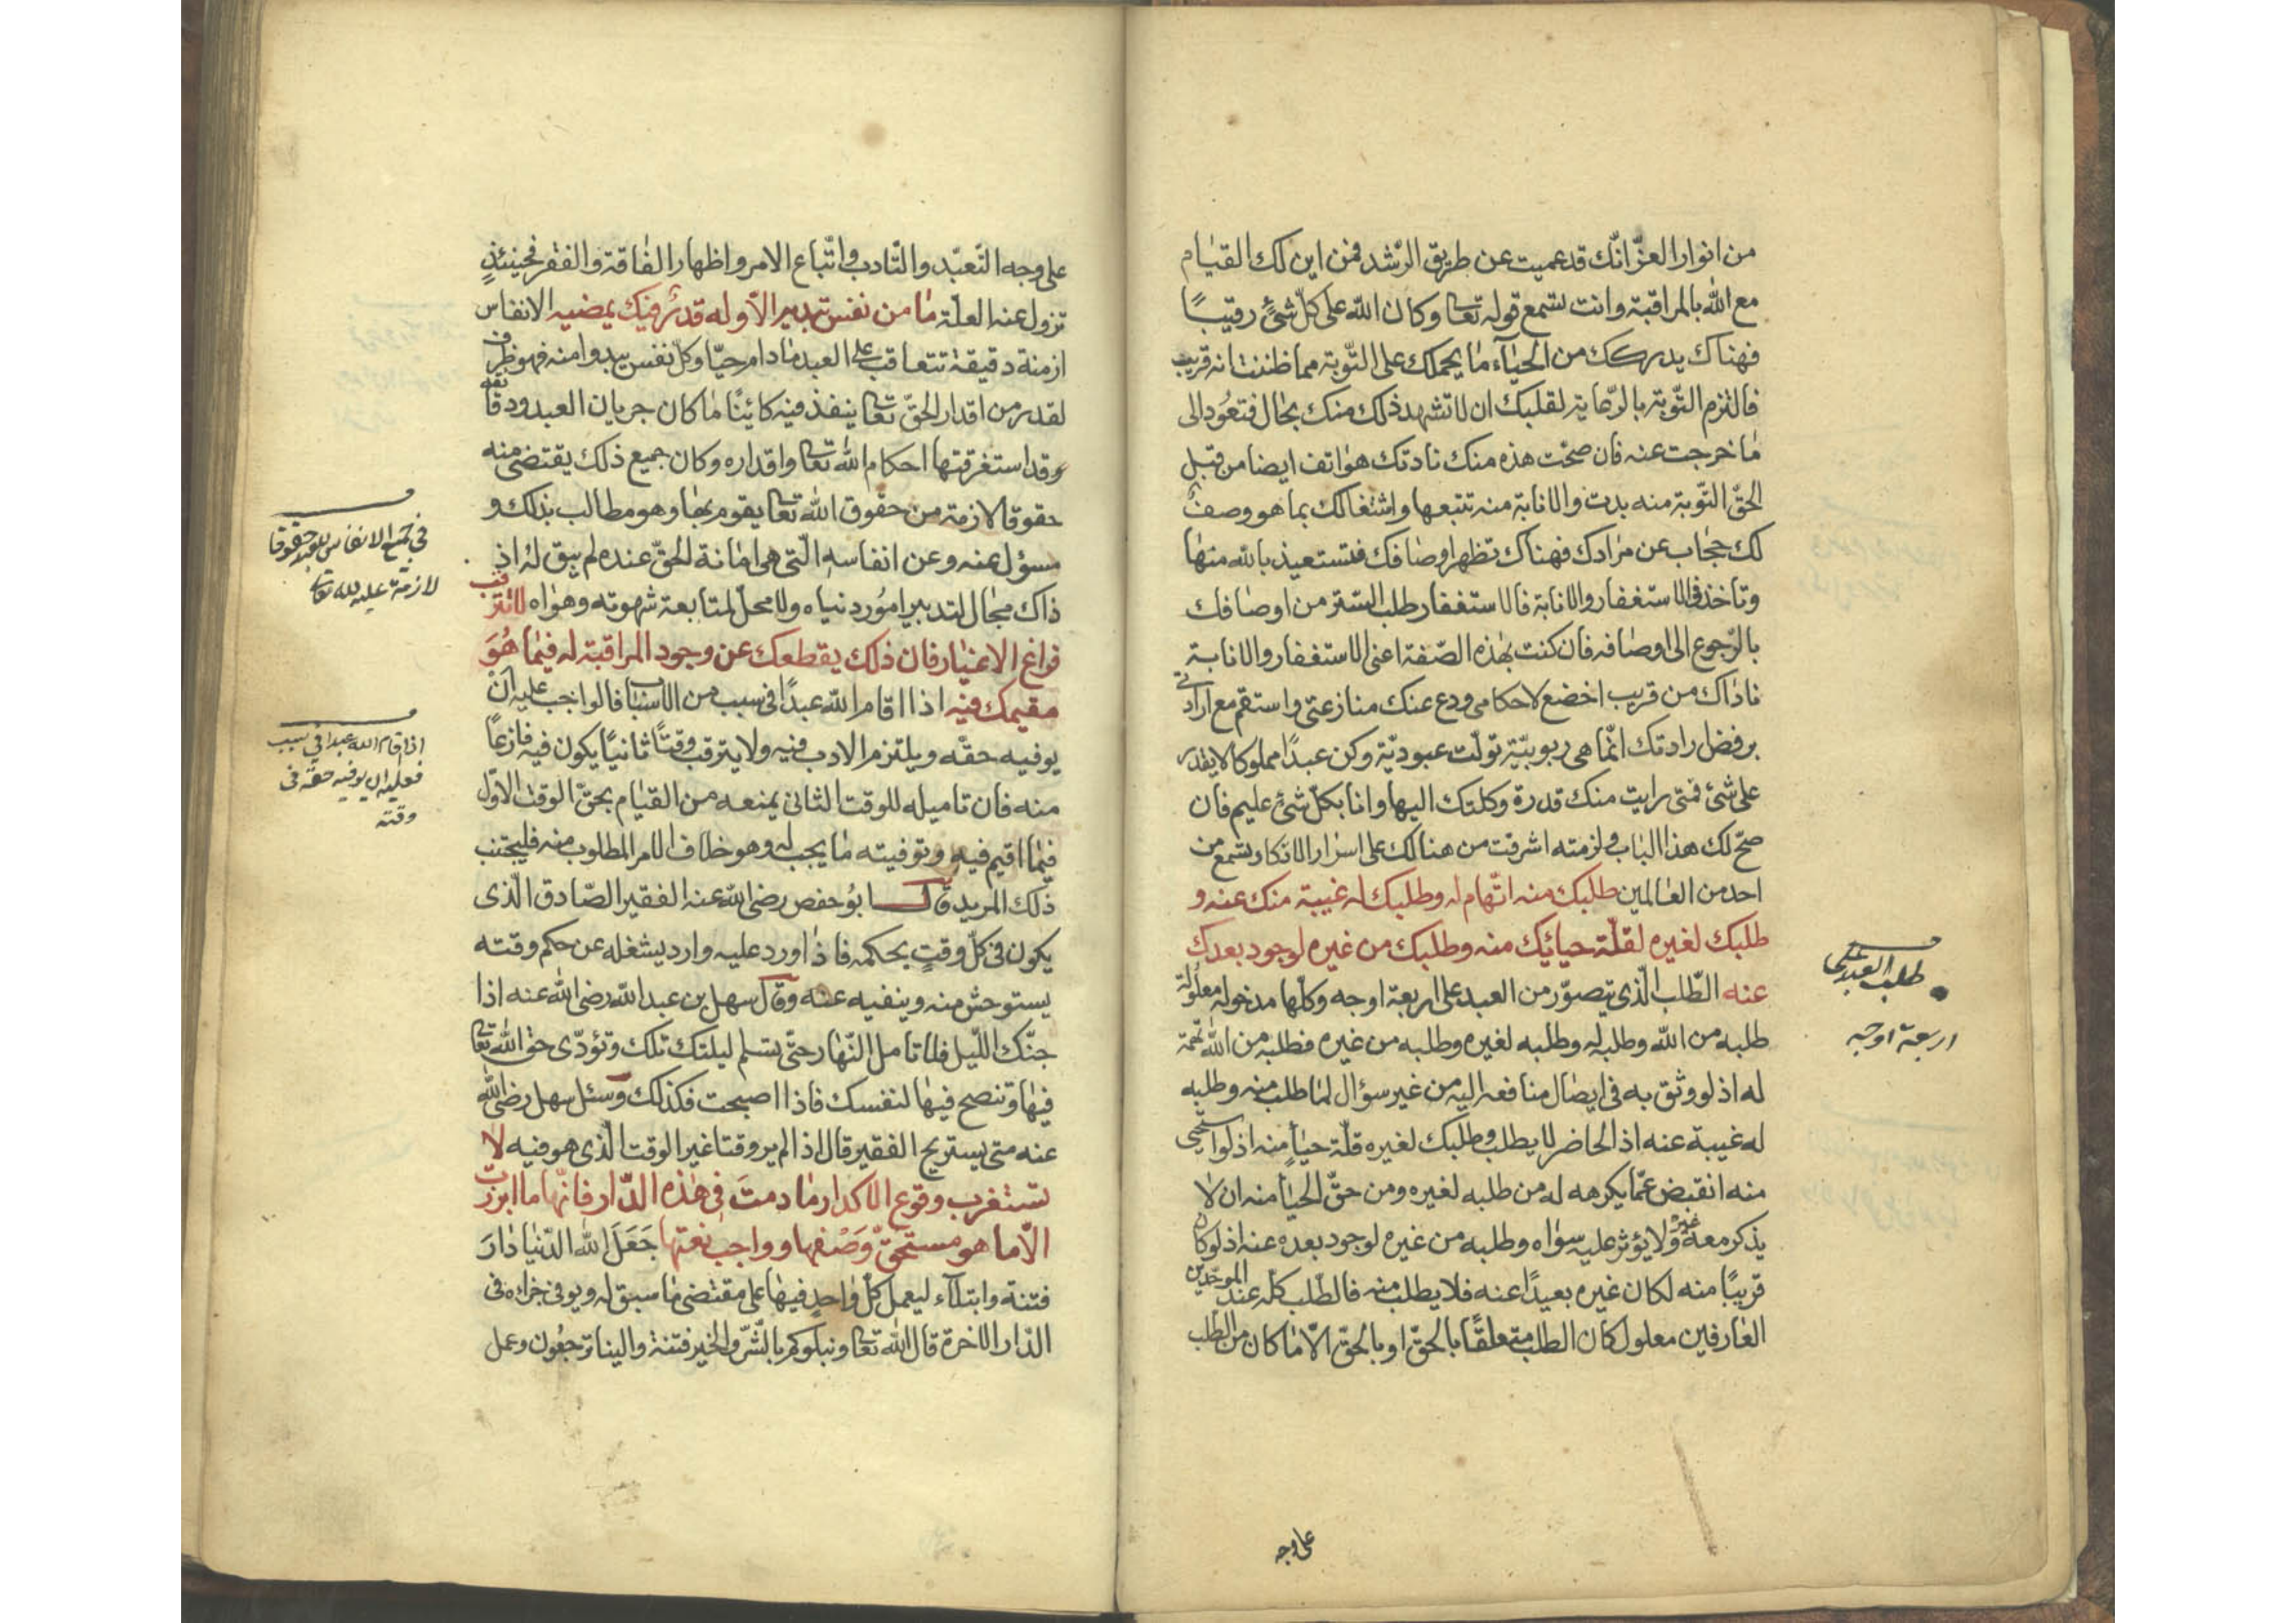 من انوار العزّ انّك قد عميت عن طريق الرّشد فمن اين لك القيام
مع الله بالمراقبة وانت تسمع قوله تعا وكان الله على كلّ شئ رقيبًا
فهناك يدركك من الحياء ما يحملك على التّوبة مما ظننت انه قريب
فالتزم التّوبة بالرّعاية لقلبك ان لا تشهد ذلك منك بحال فتعود الى
ما خرجت عنه فان صحّت هذه منك نادتك هواتف ايضا من قبل
الحقّ التّوبة منه بدت والانابة منه تتبعها واشتغالك بما هو وصف
لك حجاب عن مرادك فهناك تظهر اوصافك فتستعيذ بالله منها
وتاخذ فى الاستغفار والانابة فالاستغفار طلب الستر من اوصافك
بالرّجوع الى اوصافه فان كنت بهذه الصّفة اعنى الاستغفار والانابة
ناداك من قريب اخضع لاحكامى ودع عنك منازعتى واستقم مع ارادتى
برفض ارادتك انّما هى ربوبيّة تولّت عبوديّة وكن عبدًا مملوكا لا يقدر
على شئ فمتى رايت منك قدرة وكلتك اليها وانا بكلّ شئ عليم فان
صحّ لك هذا الباب ولزمته اشرقت من هنالك على اسرار لا تكاد تسمع من
احد من العالمين طلبك منه اتّهام له وطلبك له غيبة منك عنه و
طلبك لغيره لقلّة حيائك منه وطلبك من غيره لوجود بعدك
عنه الطّلب الّذى يتصوّر من العبد على اربعة اوجه وكلّها مدخولة معلولة
طلبه من الله وطلبه له وطلبه لغيره وطلبه من غيره فطلبه من الله تهمة
له اذ لو وثق به فى ايصال منافعه اليه من غير سؤال لما طلب منه وطلبه
له غيبة عنه اذ الحاضر لا يطلب وطلبك لغيره قلّة حياء منه اذ لو استحيى
منه انقبض عمّا يكرهه له من طلبه لغيره ومن حقّ الحياء منه ان لا
يذكر معه غيره ولا يؤثر عليه سواه وطلبه من غيره لوجود بعده عنه اذ لو كان
قريبًا منه لكان غيره بعيدًا عنه فلا يطلب منه فالطّلب كلّه عند الموحّدين
العارفين معلول كان الطلب متعلقًا بالحقّ او بالخلق الّا ما كان من الطلب
على وجه
طلب العبد على
اربعة اوجه
على وجه التّعبّد والتّادب واتّباع الامر واظهار الفاقة والفقر فحينئذٍ
تزول عنه العلّة ما من نفس تبديه الّا وله قدر فيك يمضيه الانفاس
ازمنة دقيقة تتعاقب على العبد ما دام حيّا وكلّ نفس يبدو منه فهو ظرف
لقدر من اقدار الحقّ تعا ينفذ فيه كائنًا ما كان جريان العبد ودقائقه
وقد استغرقتها احكام الله تعا واقداره وكان جميع ذلك يقتضى منه
حقوقا لازمة من حقوق الله تعا يقوم بها وهو مطالب بذلك و
مسؤل عنه وعن انفاسه الّتى هى امانة الحقّ عنده لم يبق له اذ
ذاك مجال لتدبير امور دنياه ولا محلّ لمتابعة شهوته وهواه لا تترقب
فراغ الاغيار فان ذلك يقطعك عن وجود المراقبة له فيما هُوَ
مقيمك فيه اذا اقام الله عبدًا فى سبب من الاسباب فالواجب عليه ان
يوفيه حقّه ويلتزم الادب فيه ولا يترقب وقتًا ثانيًا يكون فيه فارغًا
منه فان تاميله للوقت الثانى يمنعه من القيام بحقّ الوقت الاوّل
فيما اقيم فيه وتوفيته ما يجب له وهو خلاف الامر المطلوب منه فليجتنب
ذلك المريد قال ابو حفص رضى الله عنه الفقير الصّادق الّذى
يكون فى كلّ وقتٍ بحكمه فاذا ورد عليه وارد يشغله عن حكم وقته
يستوحش منه وينفيه عنه وقال سهل بن عبد الله رضى الله عنه اذا
جنّك اللّيل فلا تامل النّهار حتّى تسلم ليلتك تلك وتؤدّى حق الله تعا
فيها وتنصح فيها لنفسك فاذا اصبحت فكذلك وسئل سهل رضى الله
عنه متى يستريح الفقير قال اذا لم ير وقتا غير الوقت الّذى هو فيه لا
تستغرب وقوع الاكدار ما دمت فى هذه الدّار فانّها ما ابرزت
الّا ما هو مستحقّ وَصْفها وواجب نعتها جَعَلَ الله الدّنيا دارَ
فتنة وابتلاء ليعمل كلّ واحد فيها على مقتضى ما سبق له ويوفى جزاه فى
الدّار الاخرة قال الله تعا ونبلوكم بالشّرّ والخير فتنة والينا ترجعون وعمل
فى جميع الانفاس للعبد حقوقا
لازمة عليه لله تعا
اذا اقام الله عبدا فى سبب
فعليه ان يوفيه حقه فى
وقته